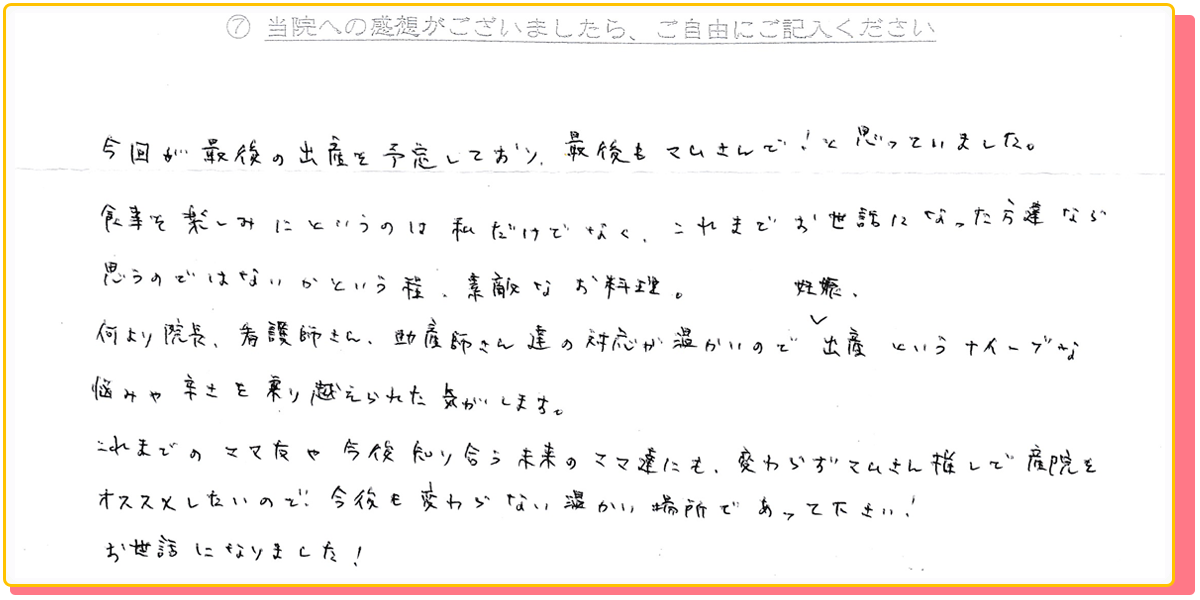 ⑦ 当院への感想がございましたら、ご自由にご記入ください
今回が最後の出産を予定しており、最後もマムさんで!と思っていました。
食事を楽しみにというのは私だけでなく、これまでお世話になった方達なら
思うのではないかという程、素敵なお料理。
妊娠、
何より院長、看護師さん、助産師さん達の対応が温かいので出産というナイーブな
悩みや辛さを乗り越えられた気がします。
これまでのママ友や今後知り合う未来のママ達にも、変わらずマムさん推しで産院を
オススメしたいので、今後も変わらない温かい場所であって下さい!
お世話になりました!